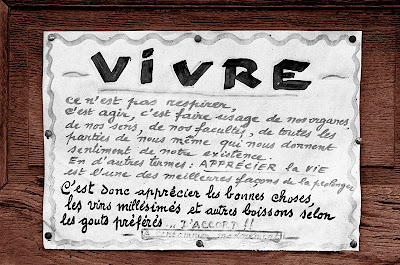 - VIVRE -
ce n'est pas respirer,
c'est agir, c'est faire usage de nos organes
de nos sens, de nos facultés, de toutes les
parties de nous même qui nous donnent
sentiment de notre existence.
En d'autres termes: APPRÉCIER la VIE
est l'une des meilleures façons de la prolonger
C'est donc apprécier les bonnes choses,
les vins millésimés et autres boissons selon
les gouts préférés... J'ACCORT !!
à consommer modérément